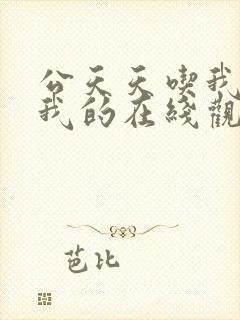 公天天喫我
我的在綫觀
芭比